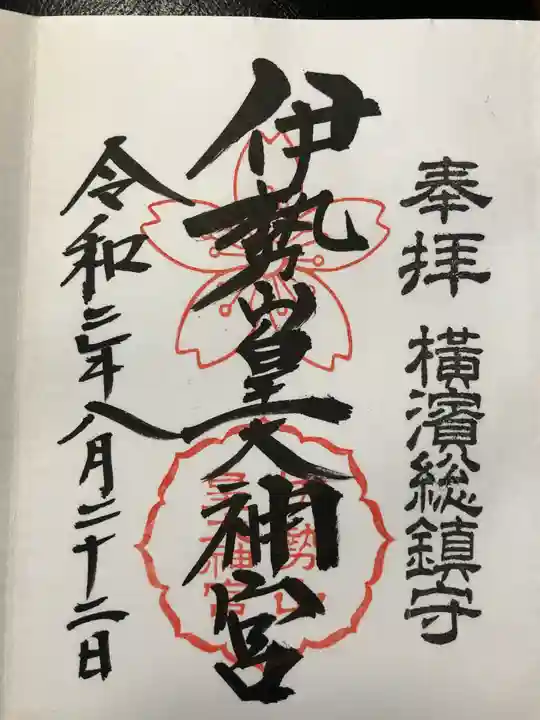 奉拝 横濱総鎮守
伊勢山皇大神宮
令和二年八月二十二日
伊勢山
皇大神宮